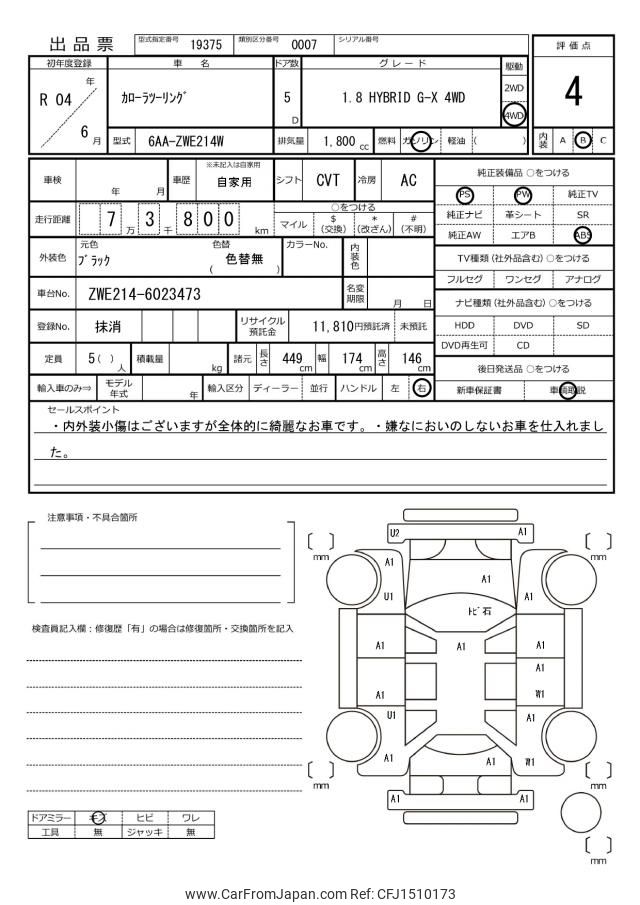 出品票 型式指定番号 19375 類別区分番号 0007 シリアル番号
初年度登録 車 名 ドア数 グレード 駆動 評価点
R 04 年 6 月 ｶﾛｰﾗﾂｰﾘﾝｸﾞ 5 D 1.8 HYBRID G-X 4WD 2WD 4WD 4
型式 6AA-ZWE214W 排気量 1,800 cc 燃料 ガソリン 軽油 ( ) 内装 A B C
車検 年 月 車歴 ※未記入は自家用 自家用 シフト CVT 冷房 AC
走行距離 7 万 3 千 8 0 0 km ○をつける マイル $ (交換) * (改ざん) # (不明)
外装色 元色 ﾌﾞﾗｯｸ 色替 ( 色替無 ) カラーNo. 内装色
車台No. ZWE214-6023473 名変期限 月 日
登録No. 抹消 リサイクル預託金 11,810円預託済 未預託
定員 5 ( ) 人 積載量 kg 諸元 長さ 449 cm 幅 174 cm 高さ 146 cm
輸入車のみ⇒ モデル年式 年 輸入区分 ディーラー 並行 ハンドル 左 右
純正装備品 ○をつける
PS PW 純正TV
純正ナビ 革シート SR
純正AW エアB ABS
TV種類 (社外品含む) ○をつける
フルセグ ワンセグ アナログ
ナビ種類 (社外品含む) ○をつける
HDD DVD SD
DVD再生可 CD
後日発送品 ○をつける
新車保証書 車輌取説
セールスポイント
・内外装小傷はございますが全体的に綺麗なお車です。・嫌なにおいのしないお車を仕入れまし
た。
注意事項・不具合箇所
検査員記入欄：修復歴「有」の場合は修復箇所・交換箇所を記入
U2 A1
mm A1 mm
A1
U1 A1
ﾄﾋﾞ石
A1 A1 A1
A1
A1 W1
U1 A1
A1 A1 W1
mm mm
A1 A1
mm
ドアミラー キズ ヒビ ワレ
工具 無 ジャッキ 無
www.CarFromJapan.com Ref: CFJ1510173